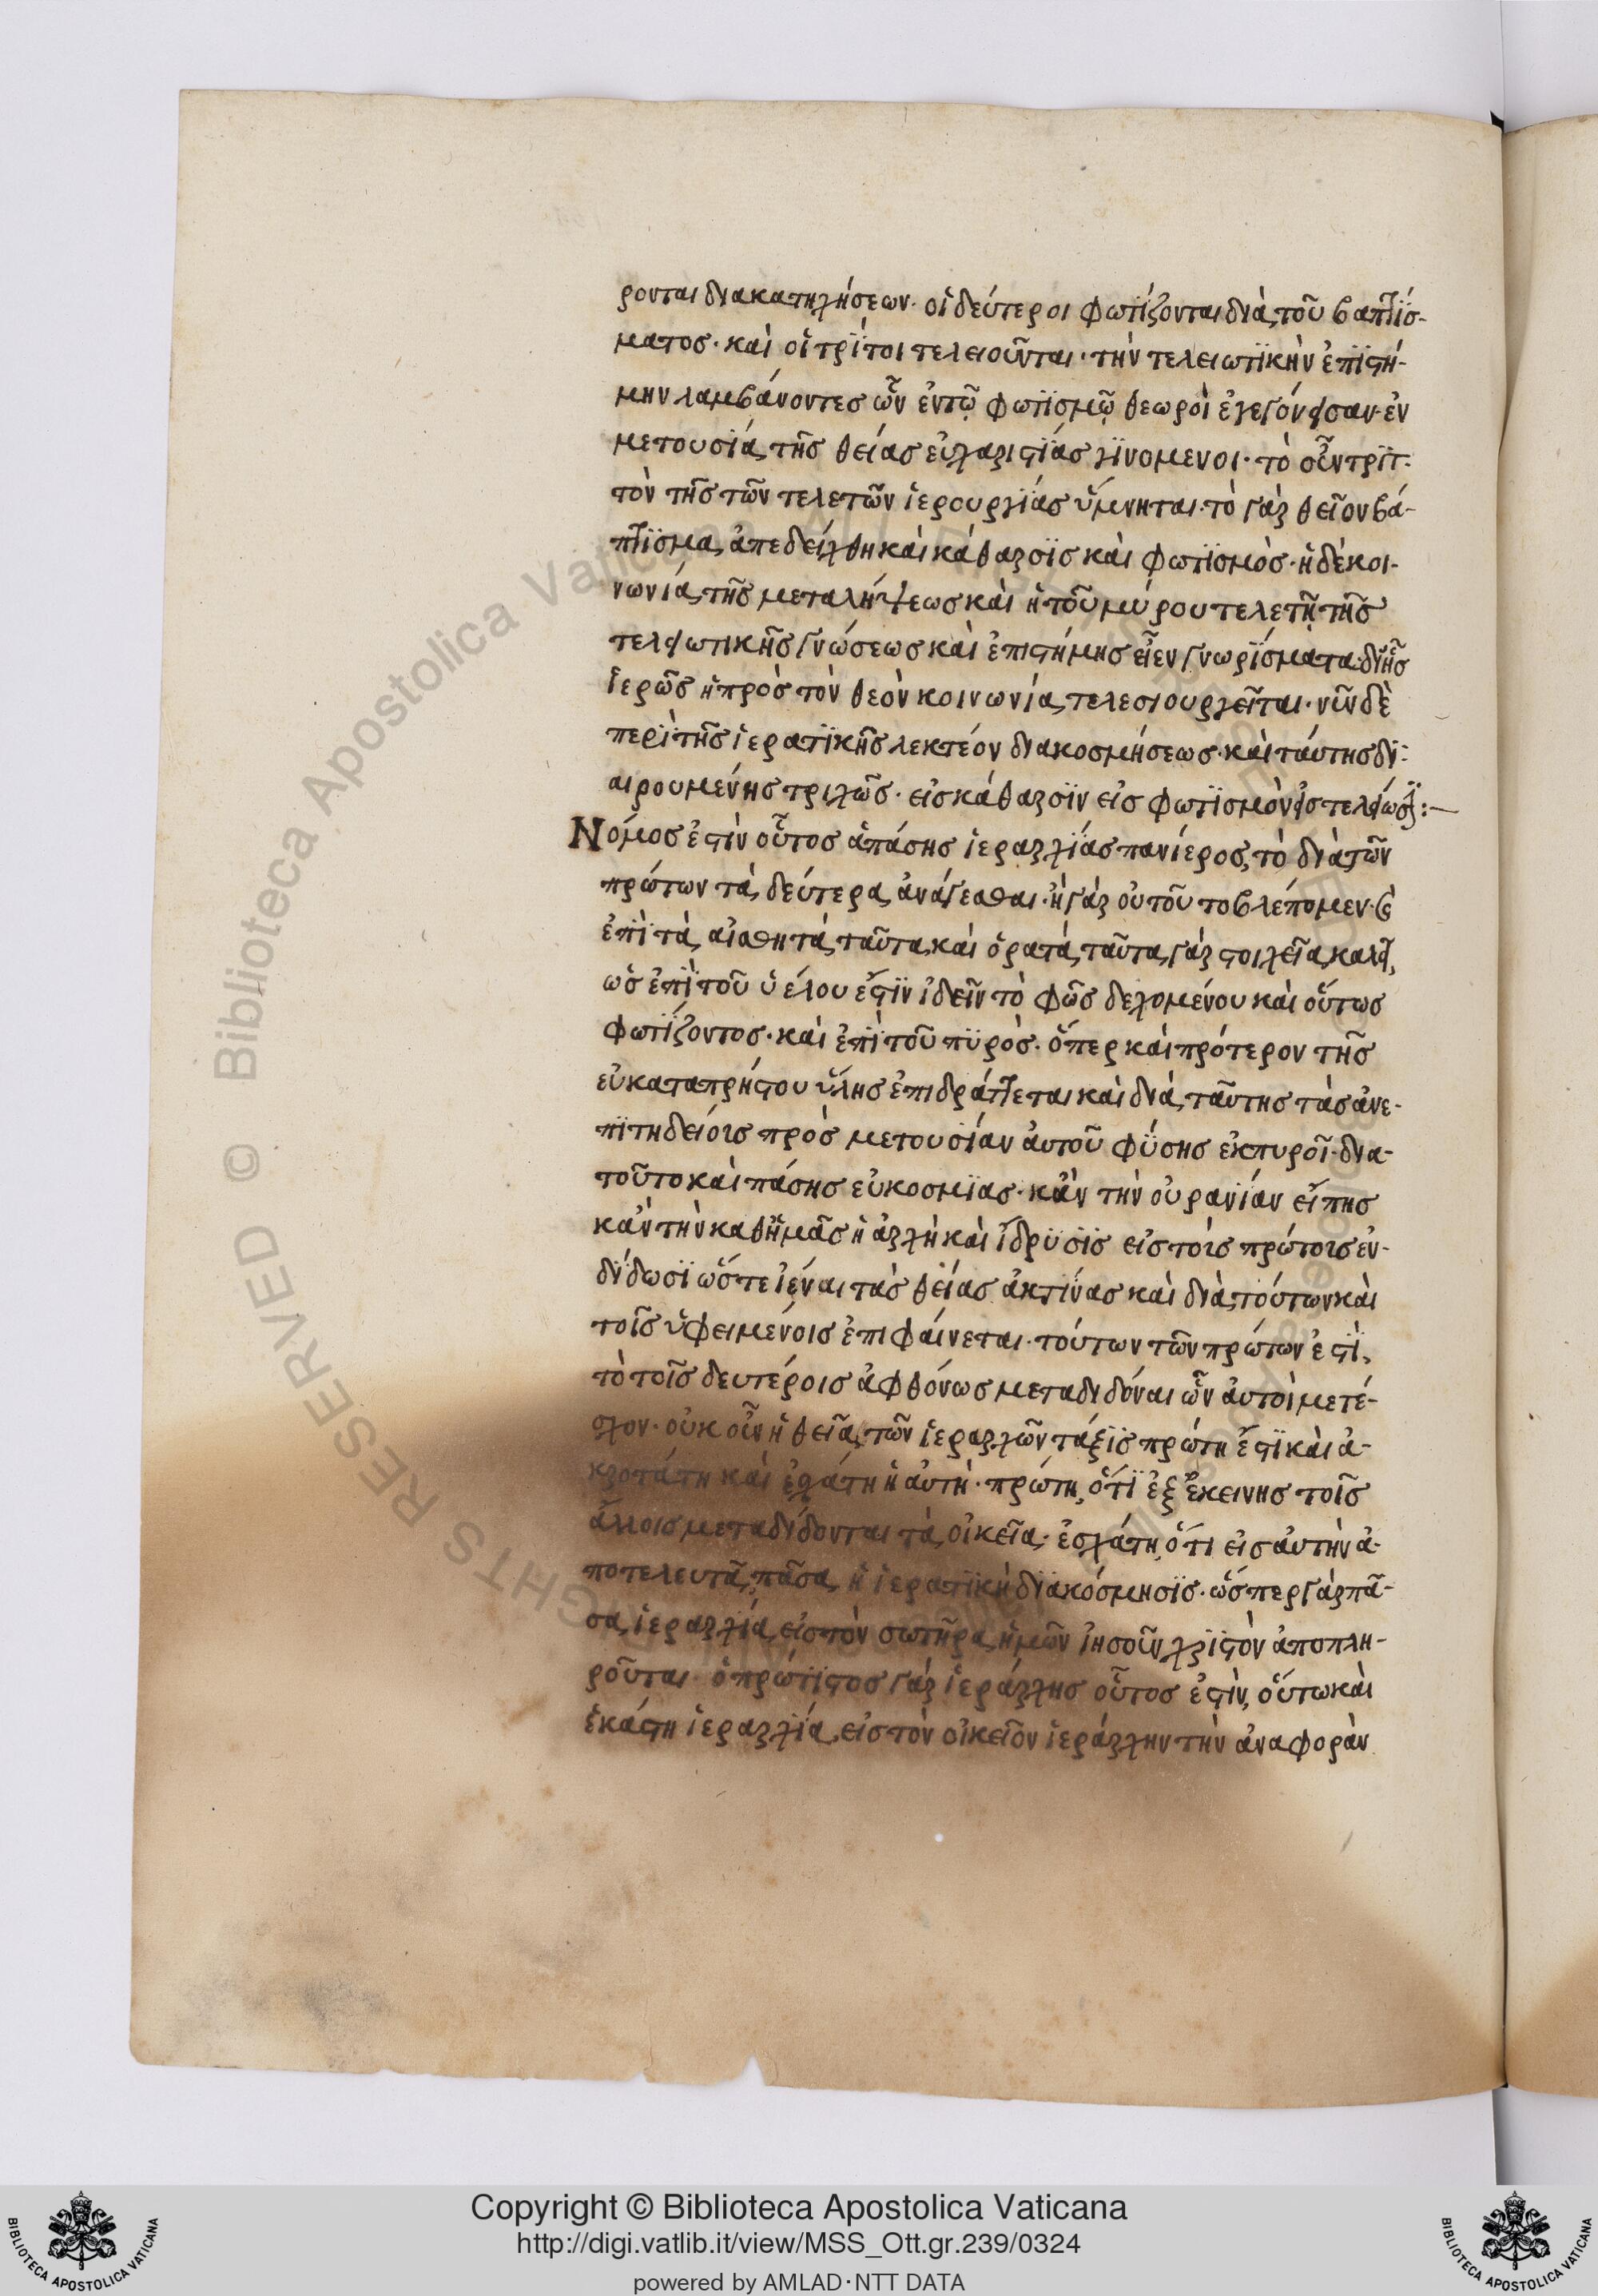 ρονται διακατηχήσεων· οἱ δεύτεροι φωτίζονται διὰ τοῦ βαπτίσ-
ματος· καὶ οἱ τρίτοι τελειοῦνται· τὴν τελειωτϊκὴν ἐπϊστή-
μην λαμβάνοντες ὧν ἐντῷ φωτϊσμῷ θεωροὶ ἐγεγόνεισαν· ἐν
μετουσίᾳ τῆς θείας εὐχαριστϊάς γϊνομενοι· τὸ οὖν τρϊτ-
τὸν τῆς τῶν τελετῶν ἱερουργϊάς ὕμνηται· τὸ γὰρ θεῖον βά-
πτϊσμα, ἀπεδείχθη καὶ κάθαρσϊς καὶ φωτϊσμὸς· ἡ δὲ κοι-
νωνία, τῆς μεταλήψεως καὶ ἡ τοῦ μύρου τελετῇ τῆς
τελειωτικῆς γνώσεως καὶ ἐπιστήμης εἶεν γνωρϊσματα· διῆς
ἱερῶς ἡ πρὸς τὸν θεὸν κοινωνία, τελεσιουργεῖται· νῦν δὲ
περὶ τῆς ἱερατϊκῆς λεκτέον διακοσμήσεως· καὶ ταύτης δϊ-
αιρουμένης τριχῶς· εἰς κάθαρσϊν εἰς φωτϊσμὸν εἰς τελείωσϊ:—
Νόμος ἐστὶν οὗτος ἁπάσης ἱεραρχϊάς πανίερος, τὸ διὰ τῶν
πρώτων τὰ δεύτερα ἀνάγεσθαι· ἢ γὰρ οὐ τοῦτο βλέπομεν· καὶ
ἐπὶ τὰ αἰσθητὰ ταῦτα, καὶ ὁρατὰ, ταῦτα γὰρ στοιχεῖα, καλεῖ,
ὡς ἐπὶ τοῦ ὑέλου ἔστϊν ἰδεῖν τὸ φῶς δεχομένου καὶ οὕτως
φωτίζοντος· καὶ ἐπὶ τοῦ πϋρὸς· ὅπερ καὶ πρότερον τῆς
εὐκαταπρήστου ὕλης ἐπιδράττεται καὶ διὰ ταύτης τὰς ἀνε-
πϊτηδείοις πρὸς μετουσίαν αὐτοῦ φύσης ἐκπυροῖ· δια-
τοῦτο καὶ πάσης εὐκοσμϊας· κἂν τὴν οὐρανίαν εἴπης
κἂν τὴν καθἡμᾶς ἡ ἀρχὴ καὶ ἵδρϋσϊς εἰς τοῖς πρώτοις ἐν-
δίδωσϊ ὥστε ἰέναι τὰς θείας ἀκτίνας καὶ διὰ τούτων καὶ
τοῖς ὑφειμένοις ἐπιφαίνεται· τούτων τῶν πρώτων ἐστὶ,
τὸ τοῖς δευτέροις ἀφθόνως μεταδιδόναι ὧν αὐτοὶ μετέ-
σχον· οὐκ οὖν ἡ θεῖα, τῶν ἱεραρχῶν τάξϊς πρώτη ἔστϊ καὶ ἀ-
κροτάτη καὶ ἐσχάτη ἡ αὐτὴ· πρώτη, ὅτϊ ἐξ ἐκεινης τοῖς
ἄλλοις μεταδίδονται τὰ οἰκεῖα· ἐσχάτη, ὅτι εἰς αὐτὴν ἀ-
ποτελευτᾶ, πᾶσα, ἡ ἱερατϊκὴ διακόσμησϊς· ὥσπερ γὰρ πᾶ-
σα, ἱεραρχία, εἰς τὸν σωτῆρα, ἡμῶν ἰησοῦν χριστὸν ἀποπλη-
ροῦται· ὁ πρώτϊστος γὰρ ἱεράρχης οὗτος ἐστὶν, οὕτω καὶ
ἑκάστη ἱεραρχία, εἰς τὸν οἰκεῖον ἱεράρχην τὴν ἀναφορὰν
Copyright © Biblioteca Apostolica Vaticana
http://digi.vatlib.it/view/MSS_Ott.gr.239/0324
powered by AMLAD·NTT DATA